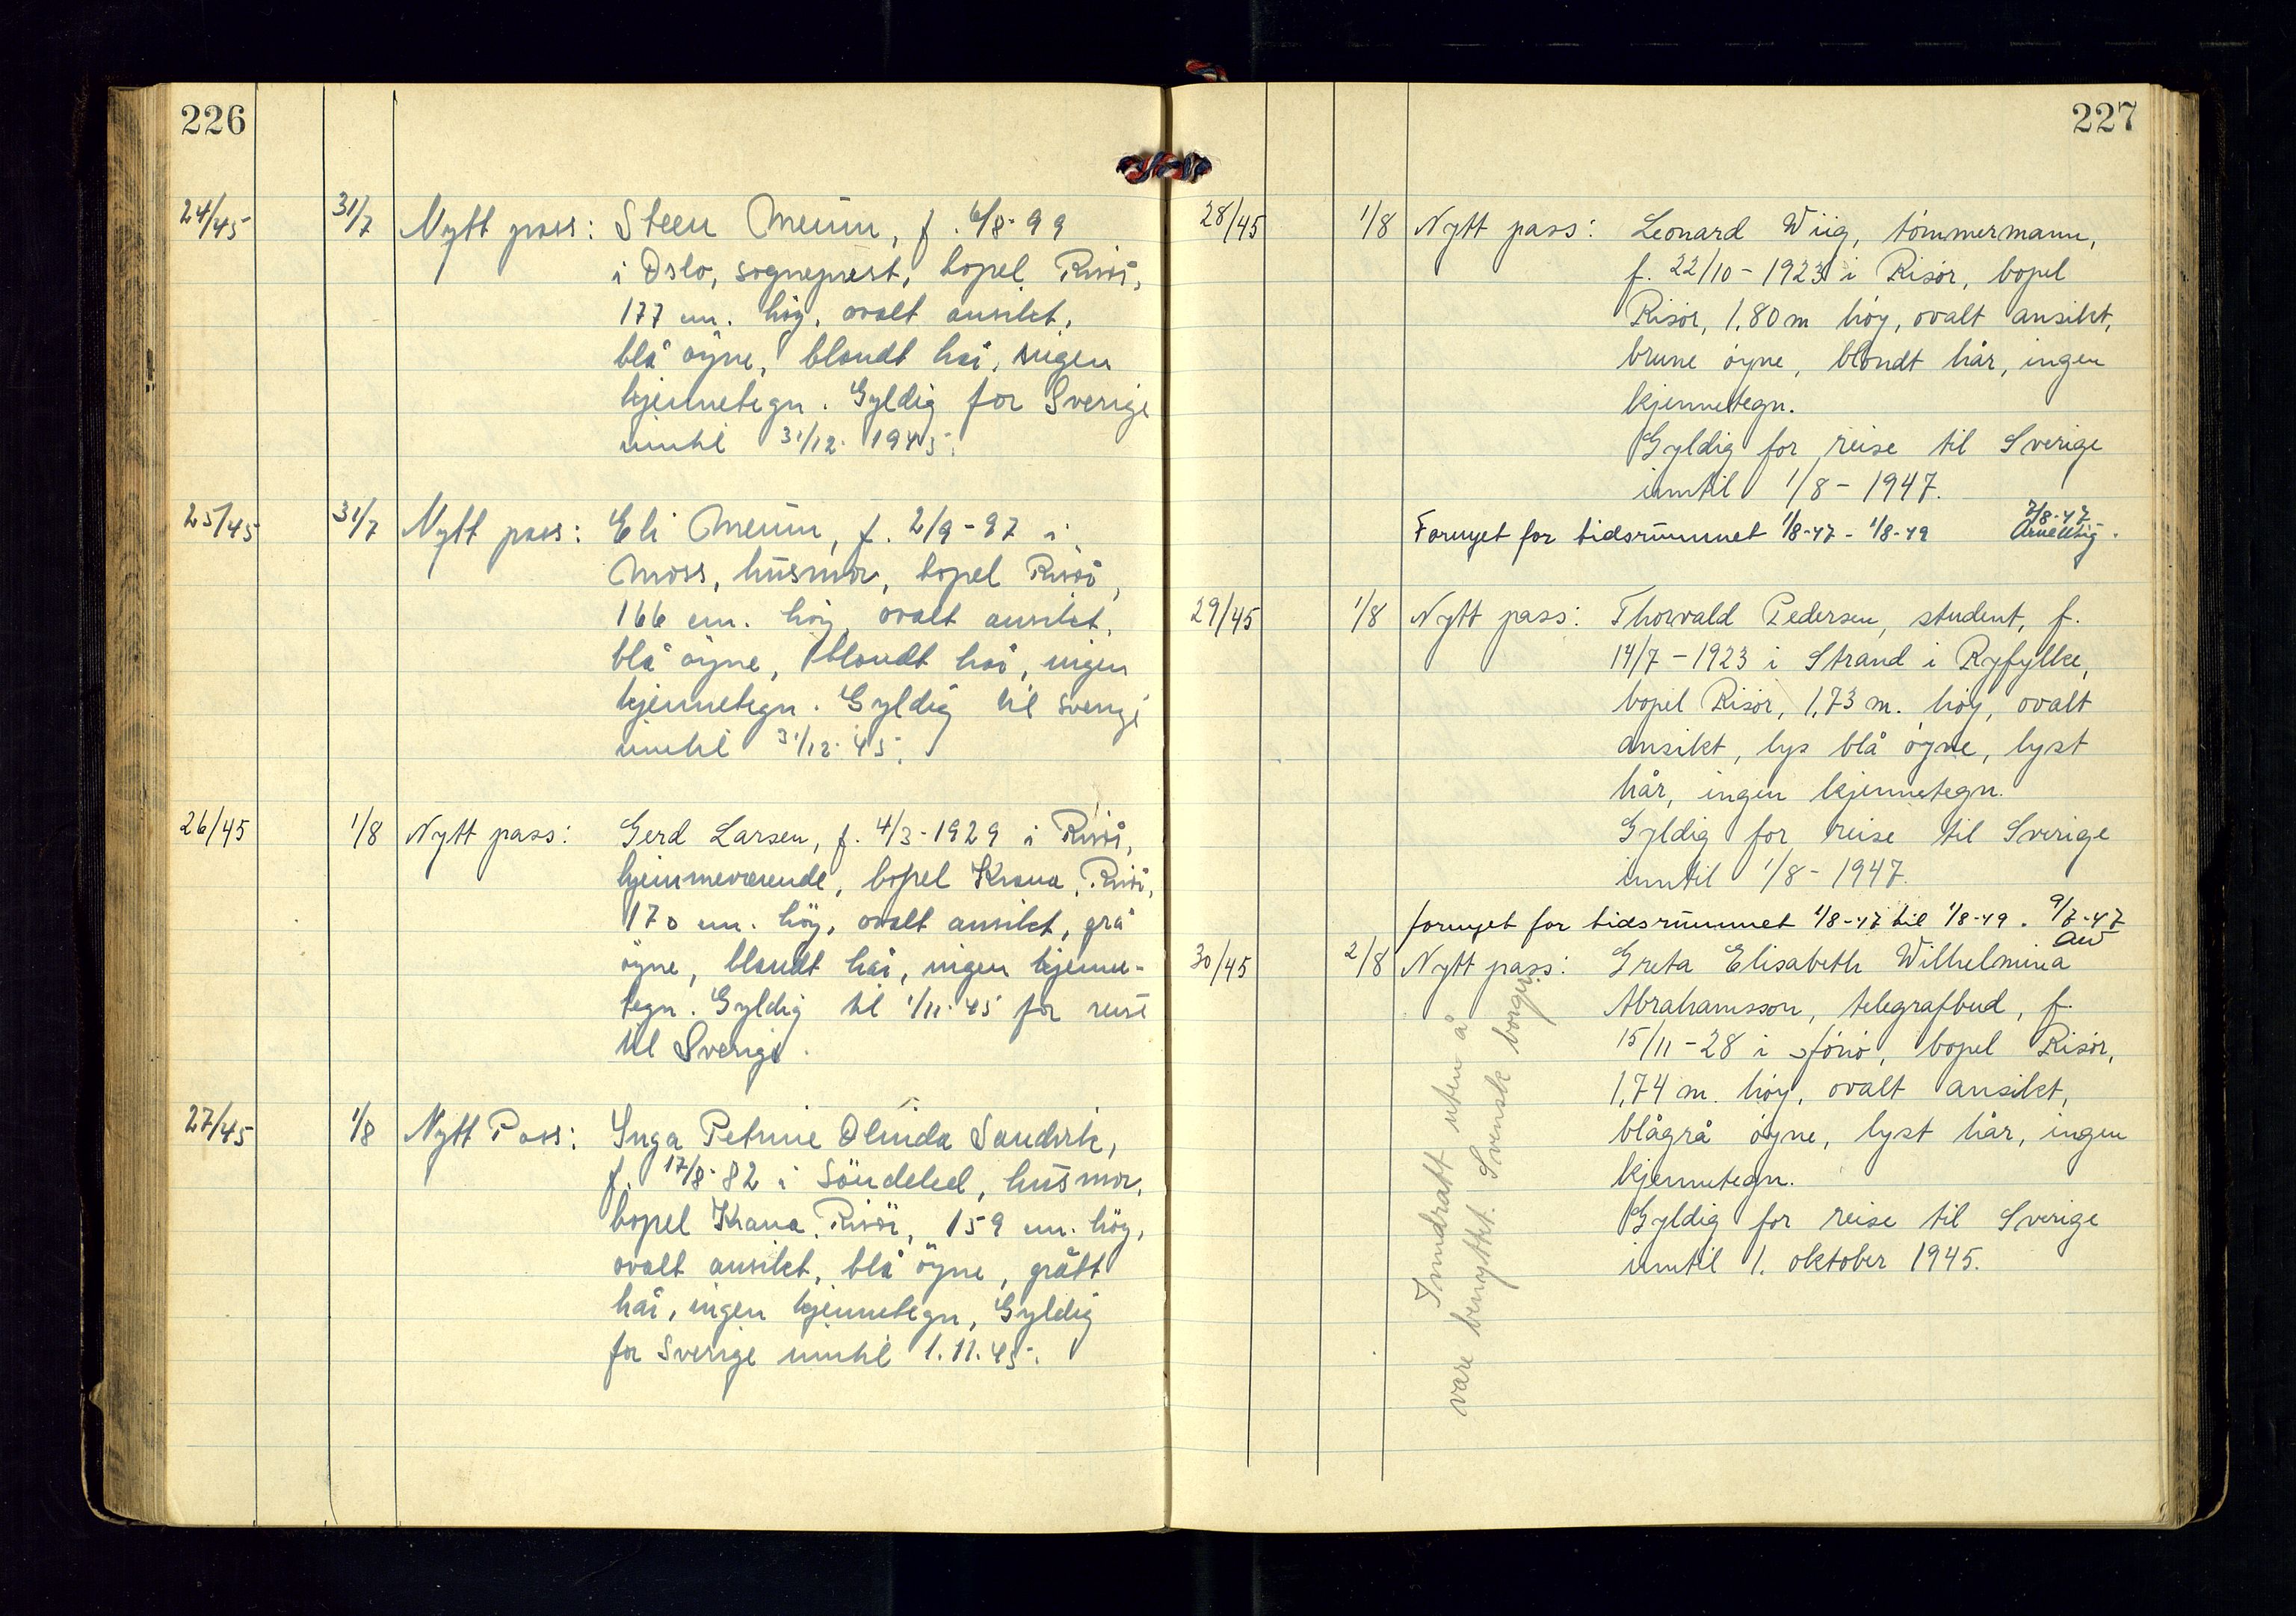 226
24/45 31/7 Nytt pass: Steen Meum, f. 6/8-99
i Oslo, sogneprest, bopel Risör,
177 cm. höy, ovalt ansikt,
blå öyne, blondt hår, ingen
kjennetegn. Gyldig for Sverige
inntil 31/12-1945.
25/45 31/7 Nytt pass: Eli Meum, f. 2/9-97 i
Moss, husmor, bopel Risör,
166 cm. höy, ovalt ansikt,
blå öyne, blondt hår, ingen
kjennetegn. Gyldig til Sverige
inntil 31/12-45.
26/45 1/8 Nytt pass: Gerd Larsen, f. 4/3-1929 i Risör,
hjemmeværende, bopel Krana, Risör,
170 cm. höy, ovalt ansikt, grå
öyne, blondt hår, ingen kjenne-
tegn. Gyldig til 1/11-45 for reise
til Sverige.
27/45 1/8 Nytt Pass: Inga Petrine Olinda Sandvik,
f. 17/8-82 i Söndeled, husmor,
bopel Krana, Risör, 159 cm. höy,
ovalt ansikt, blå öyne, grått
hår, ingen kjennetegn, Gyldig
for Sverige inntil 1.11.45.
227
28/45 1/8 Nytt pass: Leonard Wiig, tömmermann,
f. 22/10-1923 i Risör, bopel
Risör, 1,80 m höy, ovalt ansikt,
brune öyne, blondt hår, ingen
kjennetegn.
Gyldig for reise til Sverige
inntil 1/8-1947.
Fornyet for tidsrummet 1/8-47 - 1/8-49 7/8-47
29/45 1/8 Nytt pass: Thorvald Pedersen, student, f.
14/7-1923 i Strand i Ryfylke,
bopel Risör, 1,73 m. höy, ovalt
ansikt, lys blå öyne, lyst
hår, ingen kjennetegn.
Gyldig for reise til Sverige
inntil 1/8-1947.
fornyet for tidsrummet 1/8-47 til 1/8-49. 9/8-47
AW
30/45 2/8 Nytt pass: Greta Elisabeth Wilhelmina
Abrahamsson, telegrafbud, f.
15/11-28 i , bopel Risör,
1,74 m. höy, ovalt ansikt,
blågrå öyne, lyst hår, ingen
kjennetegn.
Gyldig for reise til Sverige
inntil 1. oktober 1945.
Inndratt uten å
være benyttet. Svensk borger.